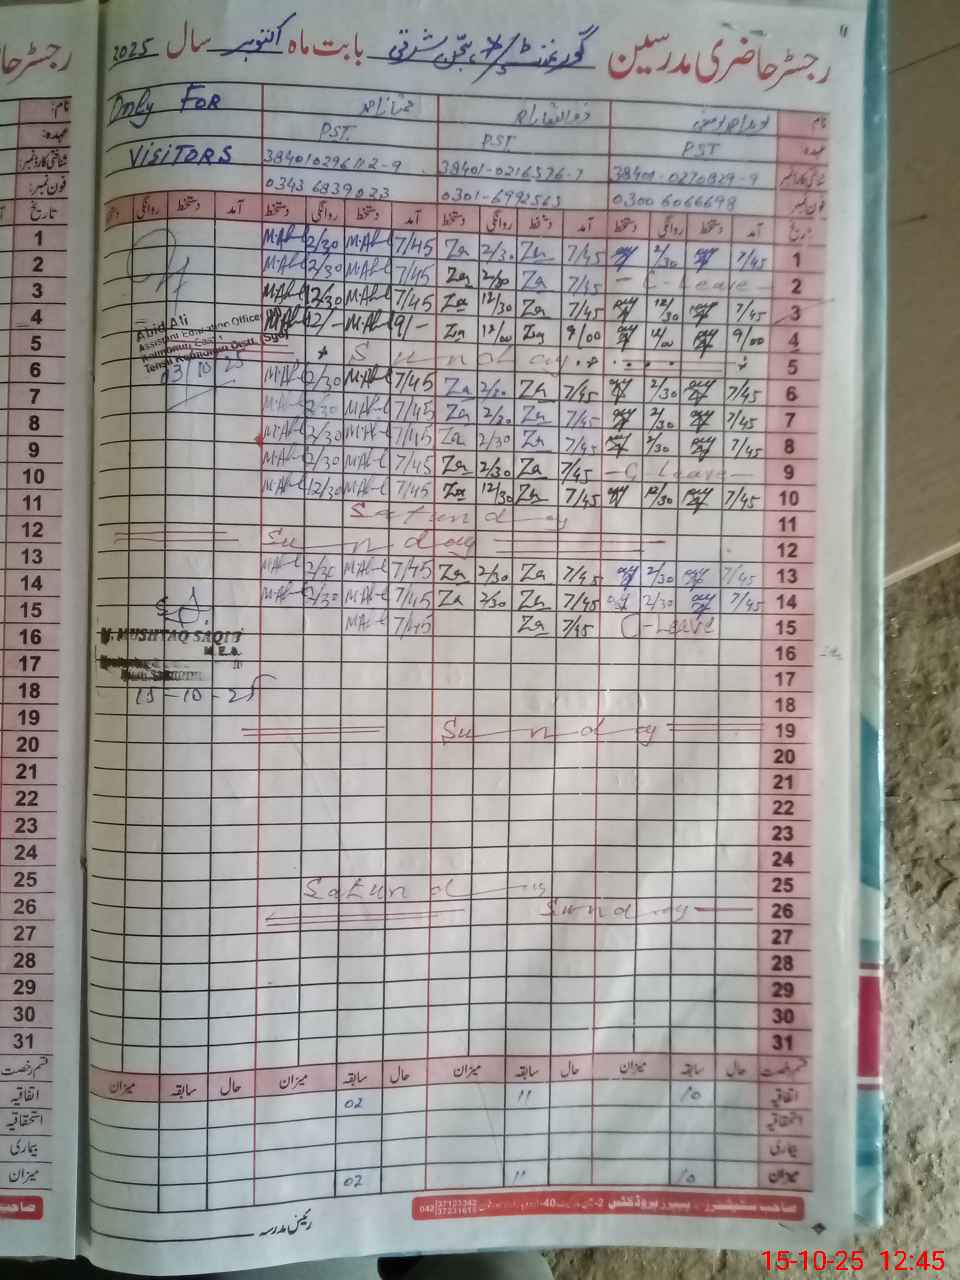 رجسٹر حاضری مدرسین گورنمنٹ بابت ماہ اکتوبر سال 2025
Only For
VISITORS
نام
عہدہ PST PST P.S.T.
شناختی کارڈ نمبر 38401-0270829-9 38401-0216576-7
فون نمبر 03006066698 0301-6992563 0343 6839023
تاریخ آمد دستخط روانگی دستخط آمد دستخط روانگی دستخط آمد دستخط روانگی دستخط آمد دستخط روانگی دستخط
1 7/45 2/30 7/45 Za 2/30 Za 7/45 M.Ab-l 2/30 M.Ab-l
2 C-Leave 7/45 Za 2/30 Za 7/45 M.Ab-l 2/30 M.Ab-l
3 7/45 12/30 7/45 Za 12/30 Za 7/45 M.Ab-l 12/30 M.Ab-l
4 9/00 12/00 9/00 Za 12/00 Za 9/- M.Ab-l 12/- M.Ab-l
Abid Ali
Assistant Education Officer
03/10/25
5 Sunday
6 7/45 2/30 7/45 Za 2/30 Za 7/45 M.Ab-l 2/30 M.Ab-l
7 7/45 2/30 7/45 Za 2/30 Za 7/45 M.Ab-l 2/30 M.Ab-l
8 7/45 2/30 7/45 Za 2/30 Za 7/45 M.Ab-l 2/30 M.Ab-l
9 C-Leave 7/45 Za 2/30 Za 7/45 M.Ab-l 2/30 M.Ab-l
10 7/45 12/30 7/45 Za 12/30 Za 7/45 M.Ab-l 12/30 M.Ab-l
11 Saturday
12 Sunday
13 7/45 2/30 7/45 Za 2/30 Za 7/45 M.Ab-l 2/30 M.Ab-l
14 7/45 2/30 7/45 Za 2/30 Za 7/45 M.Ab-l 2/30 M.Ab-l
15 C-Leave 7/45 Za 7/45 M.Ab-l
M. MUSHTAQ SAQIB
M.E.A.
15-10-25
16
17
18
19 Sunday
20
21
22
23
24
25 Saturday
26 Sunday
27
28
29
30
31
قسم رخصت حال سابقہ میزان حال سابقہ میزان حال سابقہ میزان حال سابقہ میزان
اتفاقیہ 10 11 02
استحقاقیہ
بیماری
میزان 10 11 02
042 37123342
37231615
رئیس مدرسہ
رجسٹر حا
نام:
عہدہ:
شناختی کارڈ نمبر:
فون نمبر:
تاریخ
1
2
3
4
5
6
7
8
9
10
11
12
13
14
15
16
17
18
19
20
21
22
23
24
25
26
27
28
29
30
31
قسم رخصت
اتفاقیہ
استحقاقیہ
بیماری
میزان
صاحب
15-10-25 12:45